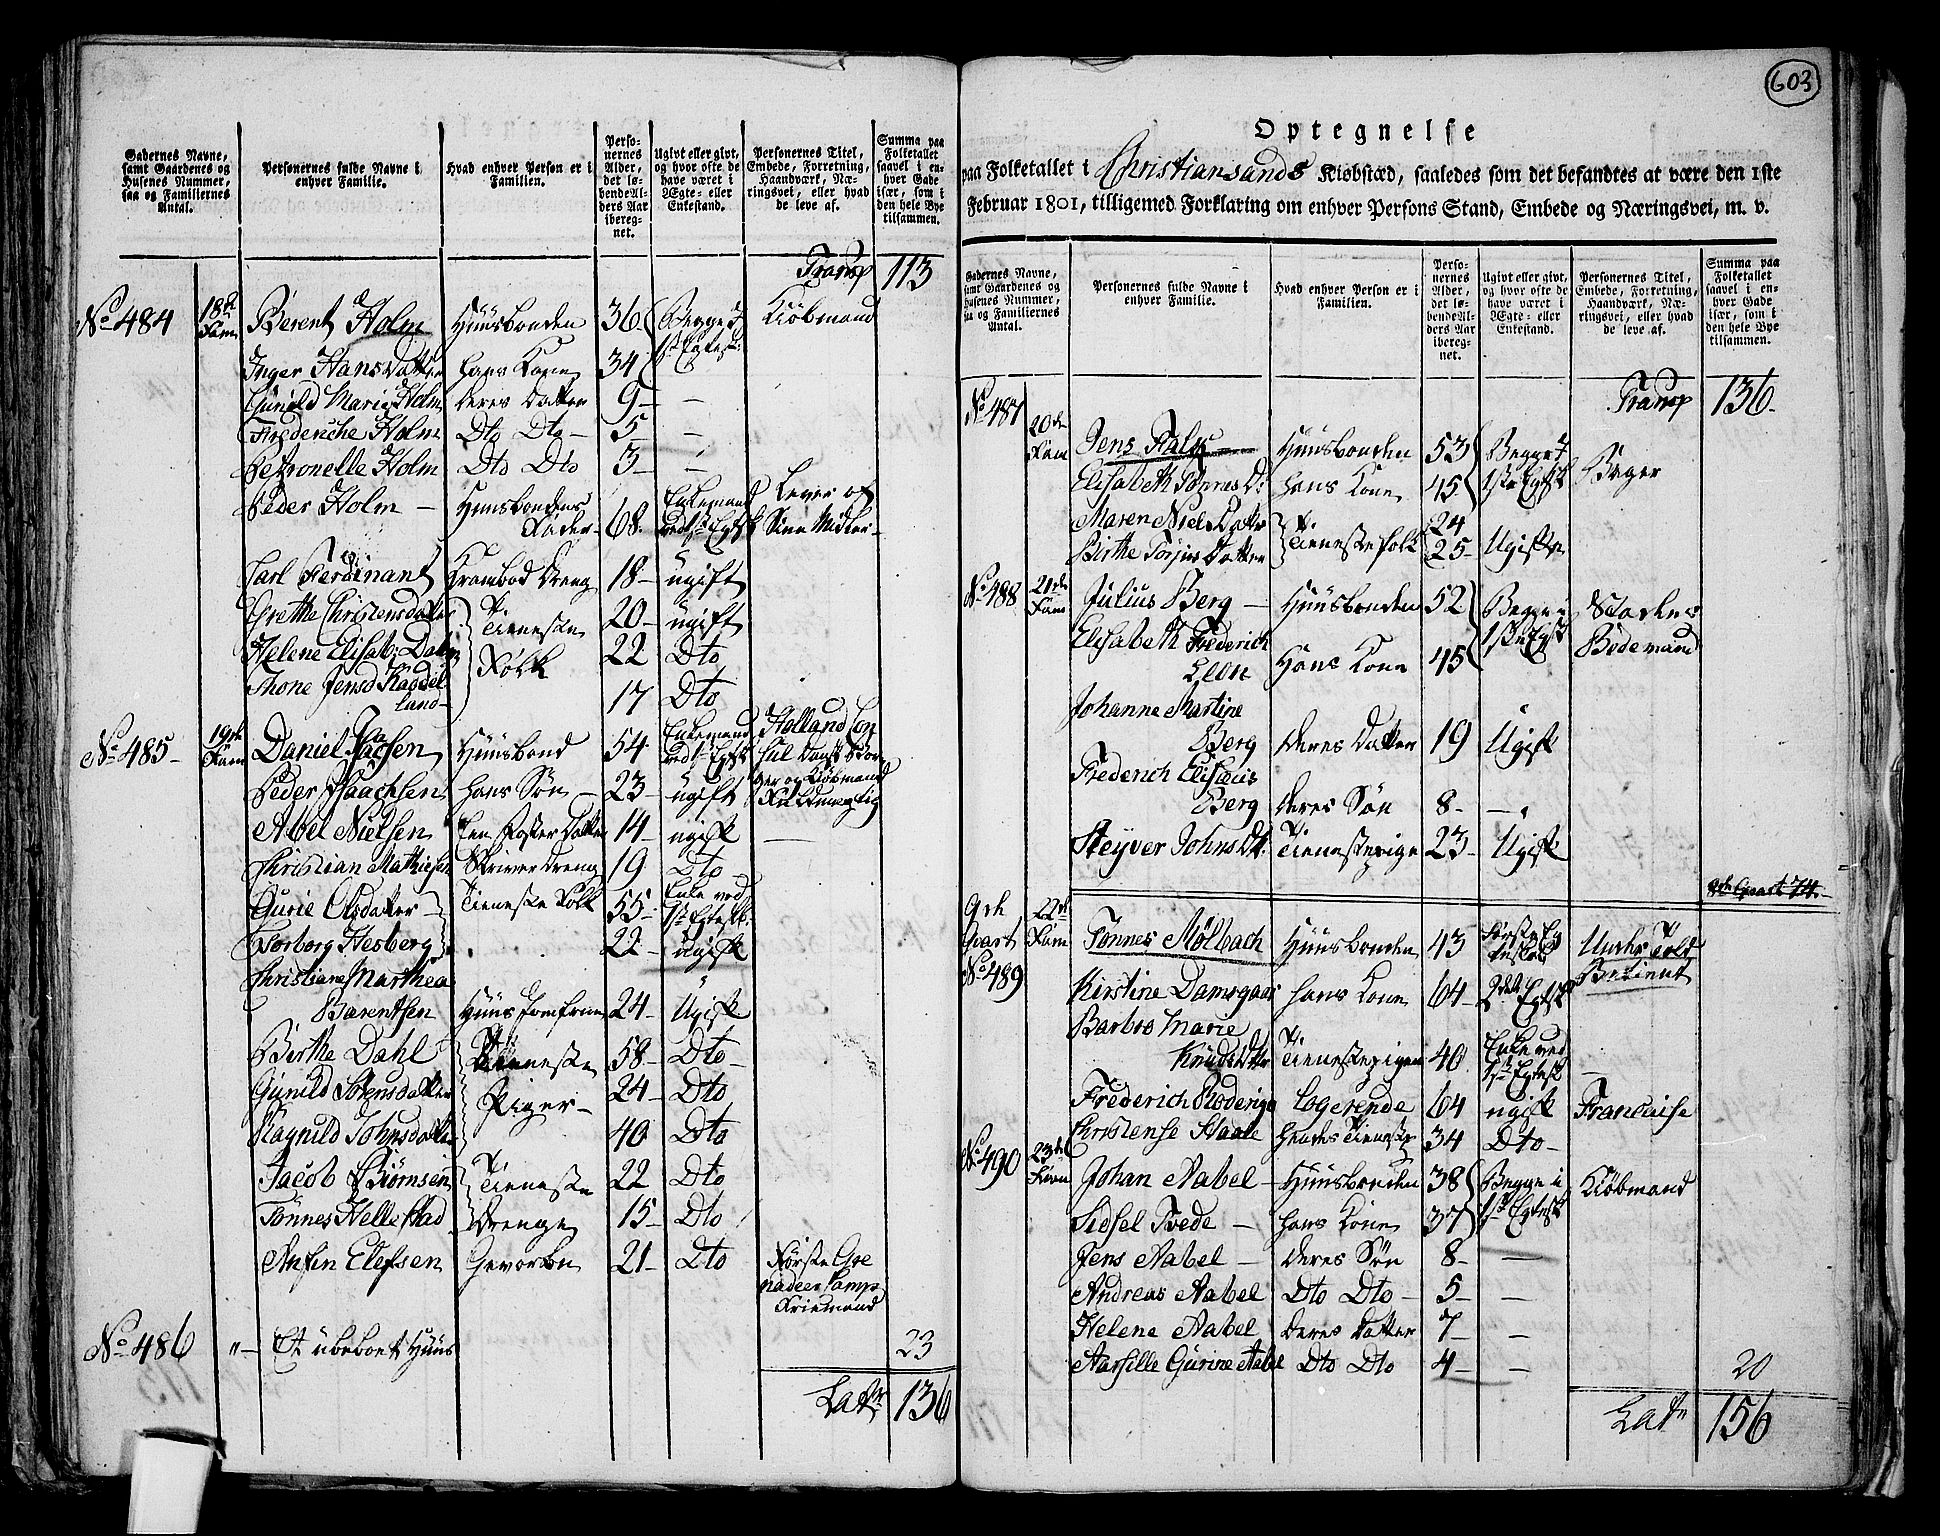 Gadernes Navne, samt Gaardenes og Husenes Nummer, saa og Familiernes Antal.
Personernes fulde Navne i enhver Familie.
Hvad enhver Person er i Familien.
Personernes Alder, det løbende Alders Aar iberegnet.
Ugivt eller givt, og hvor ofte de have været i Ægte- eller Enkestand.
Personernes Titel, Embede, Forretning, Haandværk, Næringsvei, eller hvad de leve af.
Summa paa Folketallet saavel i enhver Gade især, som i den hele Bye tilsammen.
Transp 113
No 484 18de Fam Berent Holm Huusbonden 36 Begge i 1ste Egtesk: Kiöbmand
Inger Hansdatter hans Kone 34
Gunild Marie Holm deres datter 9 —
Frederiche Holm Dto Dto 5 —
Petronelle Holm Dto Dto 3 —
Peder Holm — Huusbondens Fader 68 Enkemand ved 1ste Egtesk Lever af Sine Midler
Carl Ferdinant Krambod Dreng 18 ugift
Grethe Christensdatter Tieneste Folk 20 ugift
Helene Elisab: 22 Dto
Thone Jensd 17 Dto
No 485 19de Fam Daniel Isaachsen Huusbond 54 Enkemand ved 1 Egtsk Holland Consul Dansk Borger og Kiöbmand
Peder Isaachsen hans Sön 23 ugift
Abel Nielsen Een Foster Datter 14 ugift —
Christian Mathiesen Skriver dreng 19 Dto
Gurie Olsdatter Tieneste Folk 55 Enke ved 1ste Egtesk:
Torborg Hesberg 22 ugift
Christiane Marthea
Barentsen Huus Jomfrue 24 Ugift
Birthe Dahl Tieneste Piger 58 Dto
Gunild Sörensdatter 24 Dto
Ragnild Johnsdatter 40 Dto
Jacob Biörnsen Tieneste Drenge 22 Dto
Tönnes Hellestad 15 Dto
Anfin Elefsen Gevorben 21 Dto Förste Grenadeer Comp Friemand
No 486 " Et ubeboet Huus 23
Latr 136
603
Optegnelse
paa Folketallet i Christiansands Kiøbstæd, saaledes som det befandtes at være den 1ste
Februar 1801, tilligemed Forklaring om enhver Persons Stand, Embede og Næringsvei, m. v.
Gadernes Navne, samt Gaardenes og Husenes Nummer, saa og Familiernes Antal.
Personernes fulde Navne i enhver Familie.
Hvad enhver Person er i Familien.
Personernes Alder, det løbende Alders Aar iberegnet.
Ugivt eller givt, og hvor ofte de have været i Ægte- eller Enkestand.
Personernes Titel, Embede, Forretning, Haandværk, Næringsvei, eller hvad de leve af.
Summa paa Folketallet saavel i enhver Gade især, som i den hele Bye tilsammen.
Transp 136
No 487 20de Fam Jens Falk Huusbonden 53 Begge i 1ste Egtsk Bager
Elisabeth Tönnes D: hans Kone 45
Maren Niels Datter Tienestefolk 24
Birthe Torjus Datter 25 Ugifte
No 488 21de Fam Julius Berg — Huusbonden 52 Begge i 1ste Egtsk Stadens Bedemand
Elisabeth Frederich
Hans Kone 45
Johanne Martine
Berg deres Datter 19 Ugift
Frederich Eliseus
Berg deres Sön 8 —
Steyver Johns Dt: Tienestepige 23 Ugift
9de Qvart 22de Fam
No 489 Tönnes Mölbach Huusbonden 43 Förste Egteskab Under Told Betient
Kirstine Damsgaar hans Kone 64 2det Egtsk
Barbro Marie
Knudsdtter Tienestepigen 40 Enke ved 1ste Egtesk —
Frederich Roderigo Logerende 64 ugift Francaise
Christense Staale hendes Tieneste 34 Dto
No 490 23de Fam Johan Aabel Huusbonden 38 Begge i 1ste Egtesk Kiöbmand
Sidsel Tvede — hans Kone 37
Jens Aabel — deres Sön 8 —
Andreas Aabel Dto Dto 5 —
Helene Aabel deres datter 7 —
Gurine Aabel Dto Dto 4 — 20
Latr 156